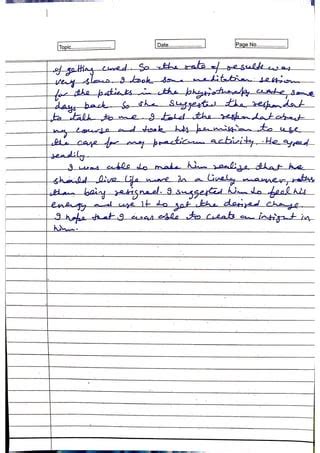 Topic
Date
Page No.
of getting cured. So the rate of results was
very slow. I took some meditation session
for the patients in the physiotherapy centre, some
days back. So she suggested the respondent
to talk to me. I told the respondent about
my course and took his permission to use
the case for my practicum activity. He agreed
readily.
I was able to make him realize that he
should live life more in a lively manner, rather
than being resigned. I suggested him to feel his
energy and use it to get the desired change.
I hope that I was able to create an insight in
him.